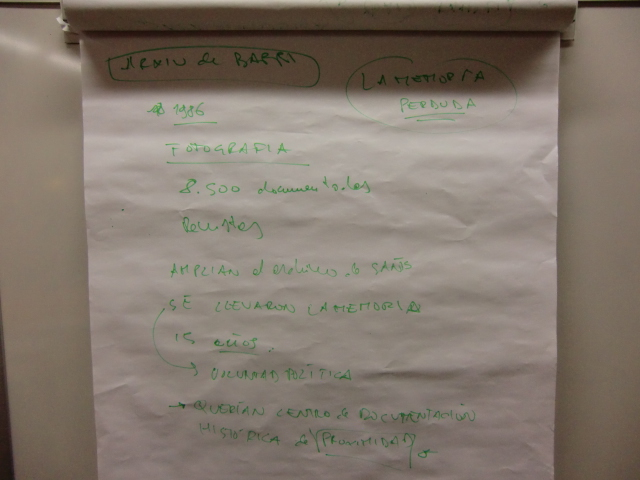 ARXIU de BARRI
LA MEMORIA
PERDUDA
1986
FOTOGRAFIA
8.500 documentados
Revistes
AMPLIAN el archivo de SANTS
SE LLEVARON LA MEMORIA
15 años.
→ VOLUNTAD POLÍTICA
→ QUERÍAN CENTRO de DOCUMENTACIÓN
HISTÓRICA de PROXIMIDAD